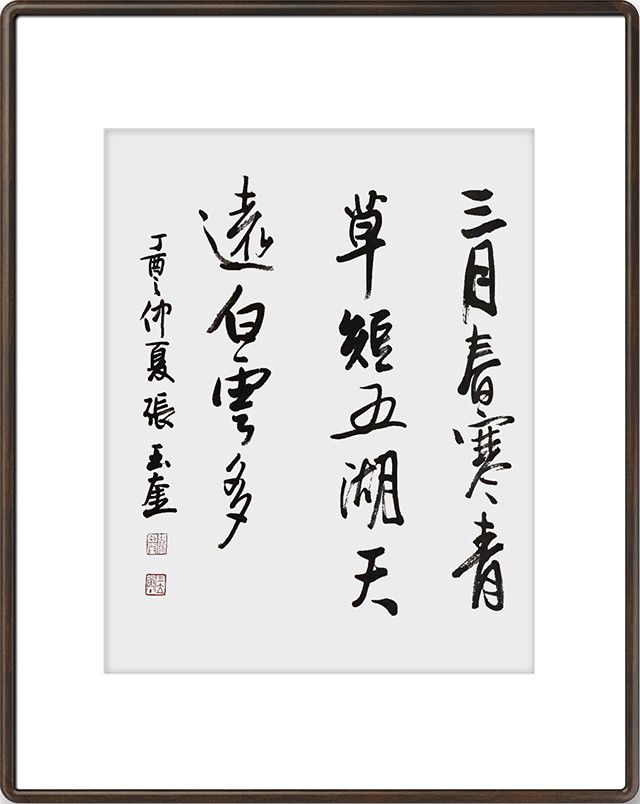 三月春寒青
草短五湖天
遠白雲多
丁酉之仲夏張玉奎